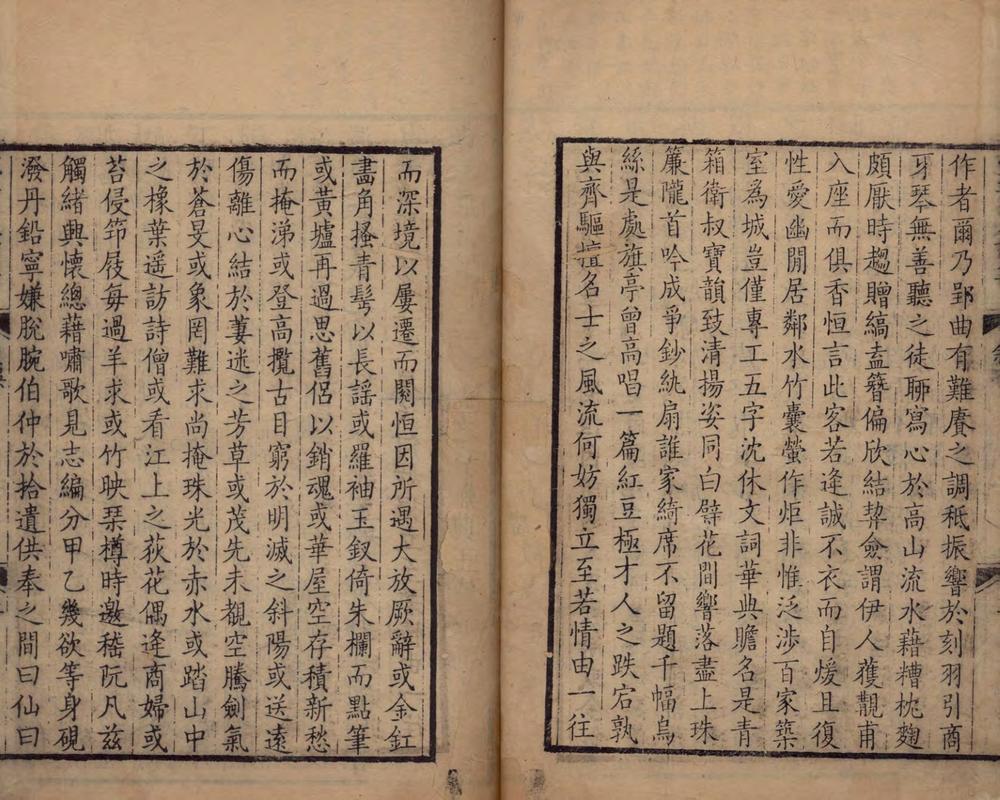 作者爾乃郢曲有難賡之調秪振響於刻羽引商
牙琴無善聽之徒聊寫心於高山流水藉糟枕麴
頗厭時趨贈縞盍簪偏欣結契僉謂伊人獲覯甫
入座而俱香恒言此客若逢誠不衣而自煖且復
性愛幽閒居鄰水竹囊螢作炬非惟泛涉百家築
室為城豈僅專工五字沈休文詞華典贍名是青
箱衛叔寶韻致清揚姿同白璧花間響落盡上珠
簾隴首吟成爭鈔紈扇誰家綺席不留題千幅烏
絲是處旗亭曾高唱一篇紅豆極才人之跌宕孰
與齊驅擅名士之風流何妨獨立至若情由一往
而深境以屢遷而闋恒因所遇大放厥辭或金釭
畫角搔青髩以長謡或羅袖玉釵倚朱欄而點筆
或黃壚再過思舊侶以銷魂或華屋空存積新愁
而掩涕或登高攬古目窮於明滅之斜陽或送遠
傷離心結於萋迷之芳草或茂先未覩空騰劍氣
於蒼旻或象罔難求尚掩珠光於赤水或踏山中
之橡葉遥訪詩僧或看江上之荻花偶逢商婦或
苔侵笻屐每過羊求或竹映琹樽時邀嵇阮凡兹
觸緒興懷總藉嘯歌見志編分甲乙幾欲等身硯
潑丹鉛寧嫌脫腕伯仲於拾遺供奉之間曰仙曰